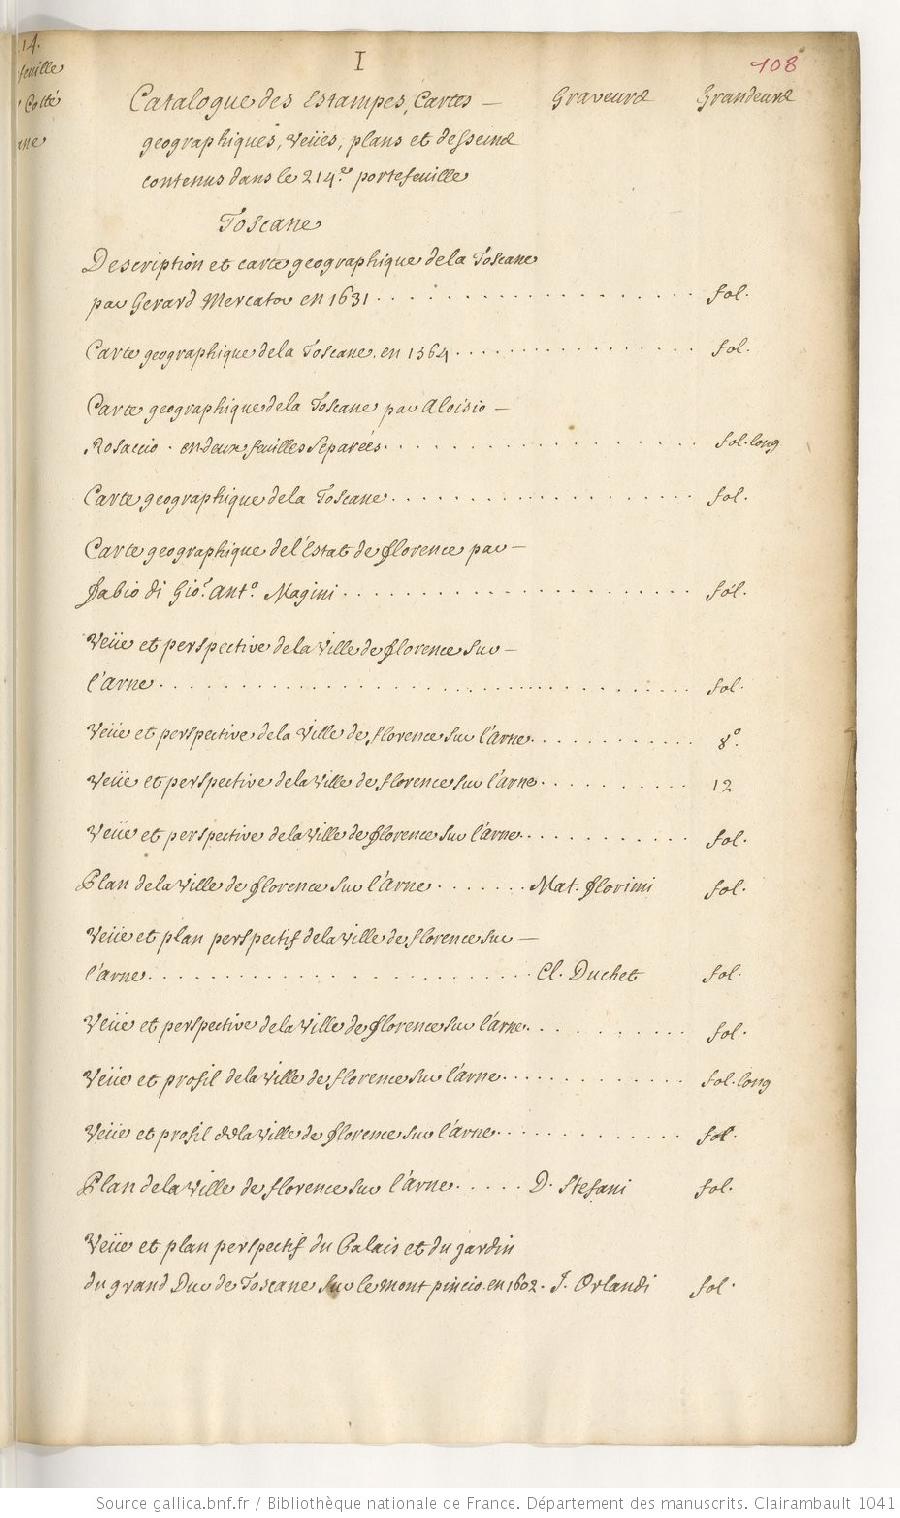 14.
feuille
Costé
ane
I
108
Catalogue des Estampes, Cartes — Graveurs Grandeurs
geographiques, Veües, plans et desseins
contenus dans le 214.e portefeuille
Toscane
Description et carte geographique de la Toscane
par Gerard Mercator en 1631 . . . . . . . . . . fol.
Carte geographique de la Toscane. en 1564 . . . . . . . . . . fol.
Carte geographique de la Toscane par Aloisio —
Rosaccio. en deux feuilles separées . . . . . . . . . . fol. long
Carte geographique de la Toscane . . . . . . . . . . fol.
Carte geographique de l'Estat de florence par —
fabio di Gio.e Ant.o Magini . . . . . . . . . . fol.
Veüe et perspective de la Ville de florence sur —
l'arne . . . . . . . . . . fol.
Veüe et perspective de la Ville de florence sur l'arne . . . . . . . . . . 8.o
Veüe et perspective de la Ville de florence sur l'arne . . . . . . . . . . 12
Veüe et perspective de la Ville de florence sur l'arne . . . . . . . . . . fol.
Plan de la Ville de florence sur l'arne . . . . . . Mat. florimi fol.
Veüe et plan perspectif de la Ville de florence sur —
l'arne . . . . . . . . . . Cl. Duchet fol.
Veüe et perspective de la Ville de florence sur l'arne . . . . . . . . . . fol.
Veüe et profil de la Ville de florence sur l'arne . . . . . . . . . . fol. long
Veüe et profil de la Ville de florence sur l'arne . . . . . . . . . . fol.
Plan de la Ville de florence sur l'arne . . . . . D. Stefani fol.
Veüe et plan perspectif du Palais et du jardin
du grand Duc de Toscane sur le mont pincio. en 1602. J. Orlandi fol.
Source gallica.bnf.fr / Bibliothèque nationale de France. Département des manuscrits. Clairambault 1041